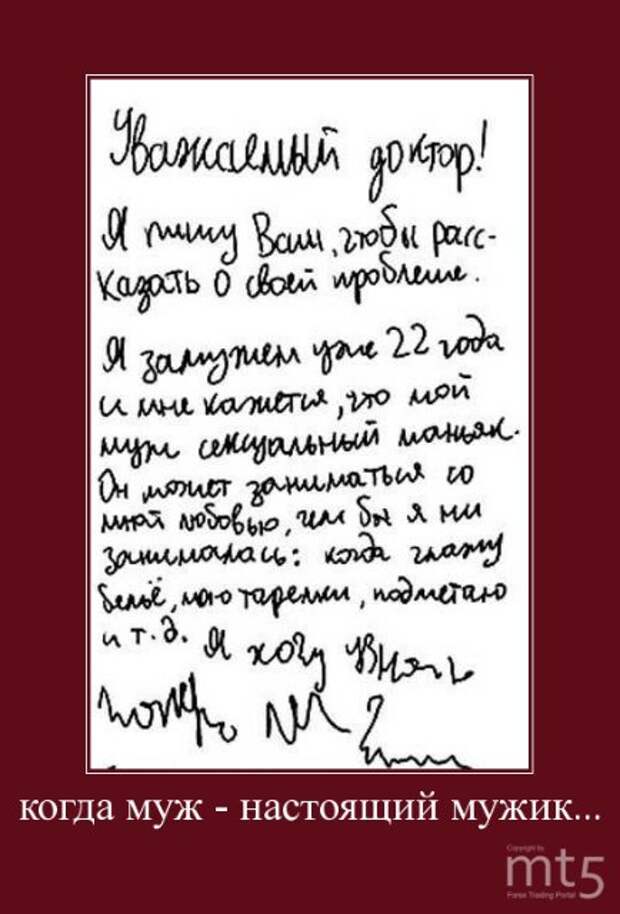 Уважаемый доктор!
Я пишу Вам, чтобы расс-
казать о своей проблеме.
Я замужем уже 22 года
и мне кажется, что мой
муж сексуальный маньяк.
Он может заниматься со
мной любовью, чем бы я ни
занималась: когда глажу
бельё, мою тарелки, подметаю
и т.д. Я хочу
когда муж - настоящий мужик...
Copyright by
mt5
Forex Trading Portal